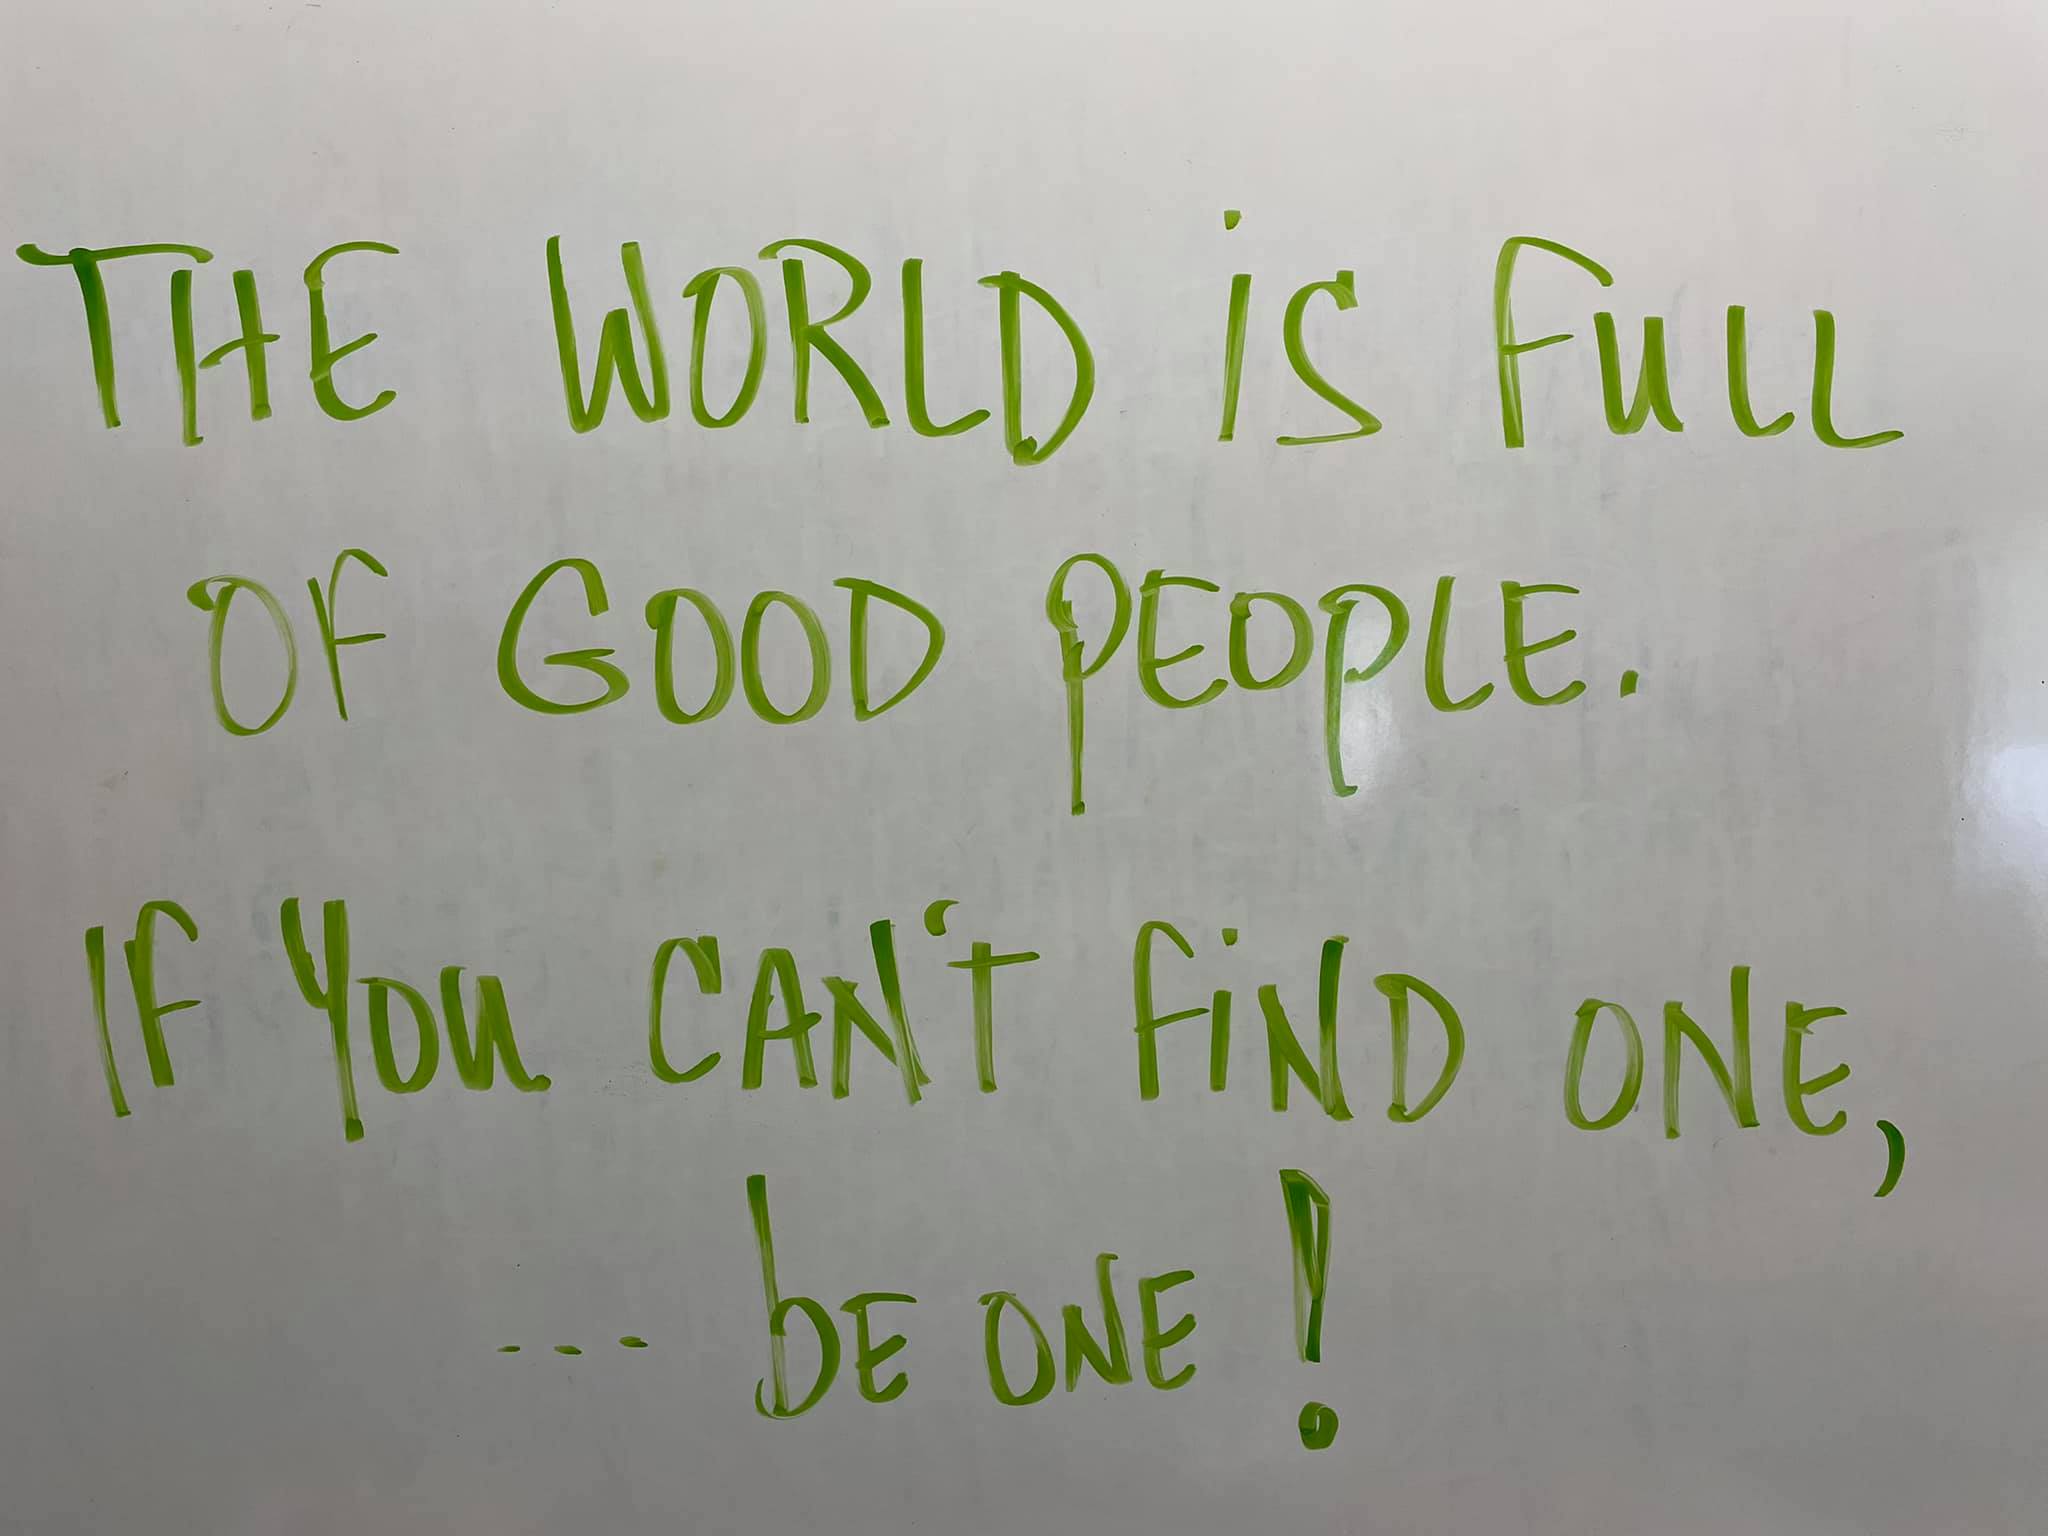 THE WORLD iS FULL
OF GOOD PEOPLE.
IF YOU CAN'T FiND ONE,
... bE ONE!